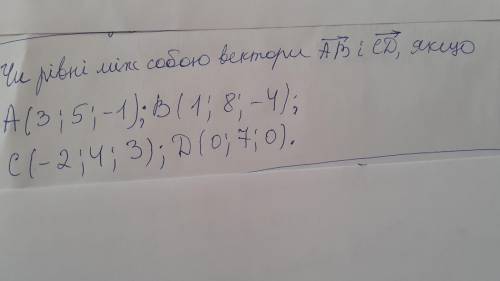 Чи рівні між собою вектори AB і CD, якщо
A(3; 5; -1); B(1; 8; -4);
C(-2; 4; 3); D(0; 7; 0).